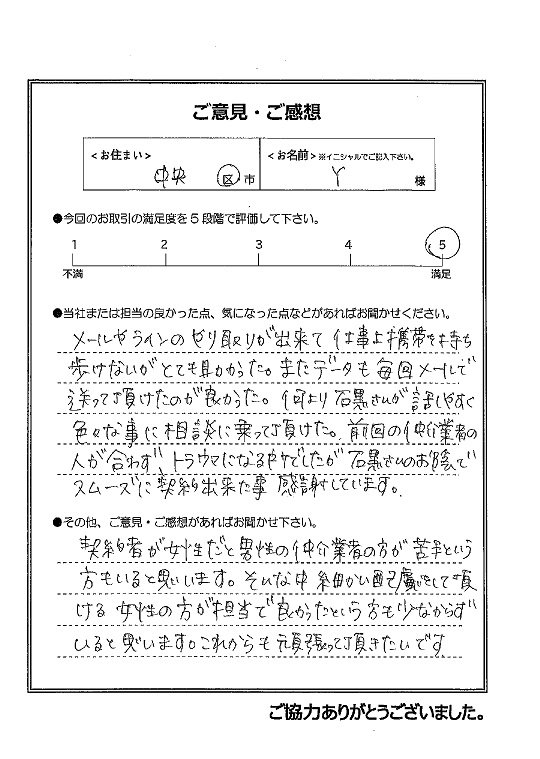 ご意見・ご感想
<お住まい>
中央 区 市
<お名前>※イニシャルでご記入下さい。
Y 様
●今回のお取引の満足度を5段階で評価して下さい。
1 2 3 4 5
不満 満足
●当社または担当の良かった点、気になった点などがあればお聞かせください。
メールやラインのやり取りが出来て 仕事上携帯を持ち
歩けないがとても助かった。またデータも毎回メールで
送って頂けたのが良かった。何より石黒さんが話しやすく
色々な事に相談に乗って頂けた。前回の仲介業者の
人が合わず、トラウマになるけでしたが石黒さんのお陰で
スムーズに契約出来た事 感謝しています。
●その他、ご意見・ご感想があればお聞かせ下さい。
契約者が女性だと男性の仲介業者の方が苦手という
方もいると思います。そんな中 細かい配慮をして頂
ける 女性の方が担当で良かったという方も少なからず
いると思います。これからも頑張って頂きたいです
ご協力ありがとうございました。